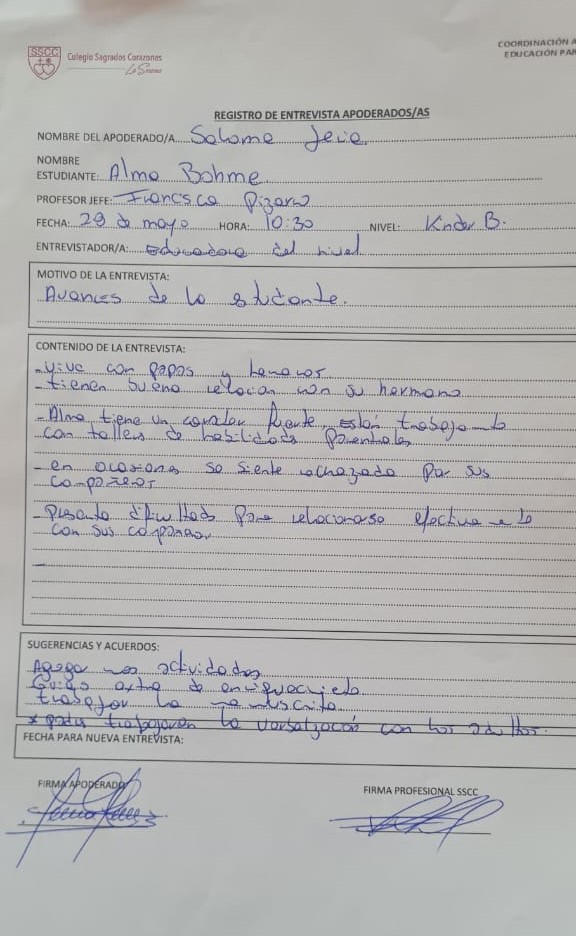 SSCC
Colegio Sagrados Corazones
La Serena
COORDINACIÓN A
EDUCACIÓN PAR
REGISTRO DE ENTREVISTA APODERADOS/AS
NOMBRE DEL APODERADO/A Salome
NOMBRE
ESTUDIANTE: Alma Bohme
PROFESOR JEFE: Francisca Pizarro
FECHA: 29 de mayo HORA: 10:30 NIVEL: Kinder B.
ENTREVISTADOR/A: Educadora del nivel
MOTIVO DE LA ENTREVISTA:
Avances de la estudiante.
CONTENIDO DE LA ENTREVISTA:
- vive con papas y hermanos
- tienen buena relacion con su hermano
- Alma tiene un caracter fuerte, estan trabajando
con talleres de habilidades parentales
- en ocasiones se siente rechazada por sus
compañeros
- Presenta dificultades para relacionarse efectivamente
con sus compañeros
SUGERENCIAS Y ACUERDOS:
Agregar mas actividades
Guias extra de enriquecimiento
trabajar la manuscrita
* poder trabajar en la verbalización con los adultos.
FECHA PARA NUEVA ENTREVISTA:
FIRMA APODERADO
FIRMA PROFESIONAL SSCC